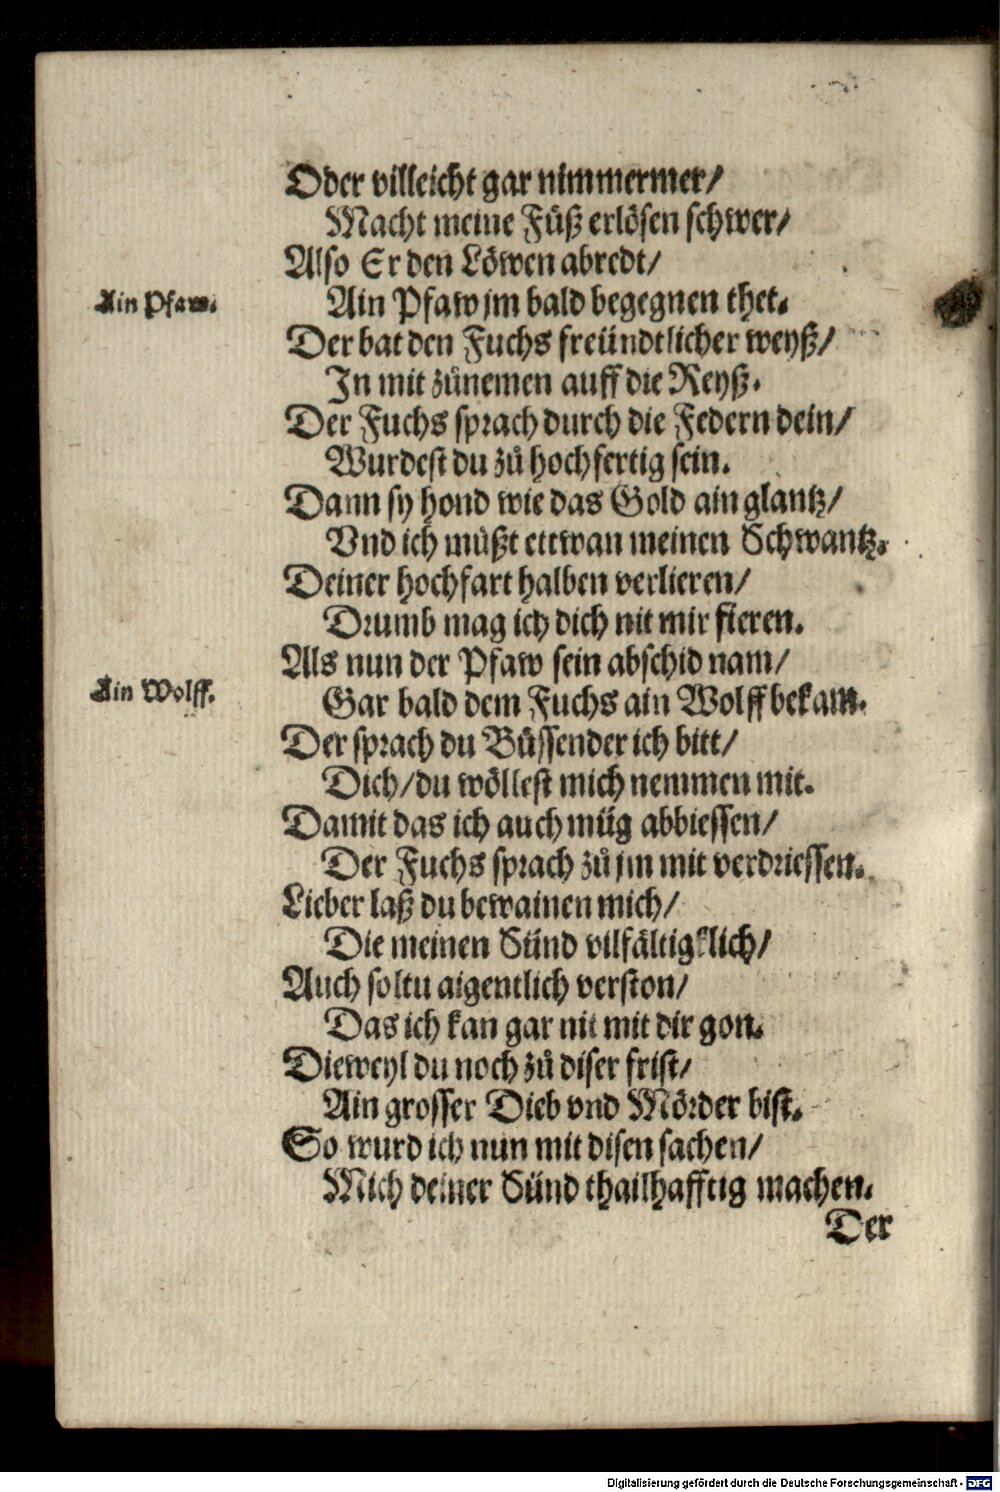 Oder villeicht gar nimmermer/
Macht meine Fuͤß erlösen schwer/
Also Er den Löwen abredt/
Ain Pfaw.
Ain Pfaw jm bald begegnen thet.
Der bat den Fuchs freündtlicher weyß/
In mit zuͦnemen auff die Reyß.
Der Fuchs sprach durch die Federn dein/
Wurdest du zuͦ hochfertig sein.
Dann sy hond wie das Gold ain glantz/
Vnd ich muͤßt ettwan meinen Schwantz.
Deiner hochfart halben verlieren/
Drumb mag ich dich nit mir fieren.
Als nun der Pfaw sein abschid nam/
Ain Wolff.
Gar bald dem Fuchs ain Wolff bekam.
Der sprach du Buͤssender ich bitt/
Dich/du wöllest mich nemmen mit.
Damit das ich auch müg abbiessen/
Der Fuchs sprach zuͦ jm mit verdriessen.
Lieber laß du bewainen mich/
Die meinen Sünd vilfältigklich/
Auch soltu aigentlich verston/
Das ich kan gar nit mit dir gon.
Dieweyl du noch zuͦ diser frist/
Ain grosser Dieb vnd Mörder bist.
So wurd ich nun mit disen sachen/
Mich deiner Sünd thailhafftig machen.
Der
Digitalisierung gefördert durch die Deutsche Forschungsgemeinschaft - DFG